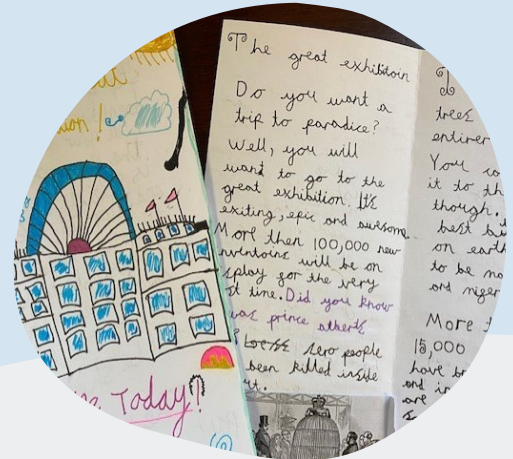 ion!
Today!
The great exhibitoin
Do you want a
trip to paradice?
Well, you will
want to go to the
great exhibition. It's
exiting, epic and awesome
More then 100,000 new
will be on
splay for the very
st time. Did you know
was prince alberts
zero people
been killed inside
trees
You
it to th
though.
best
on earth
to be
and
More
15,000
have
and in
are